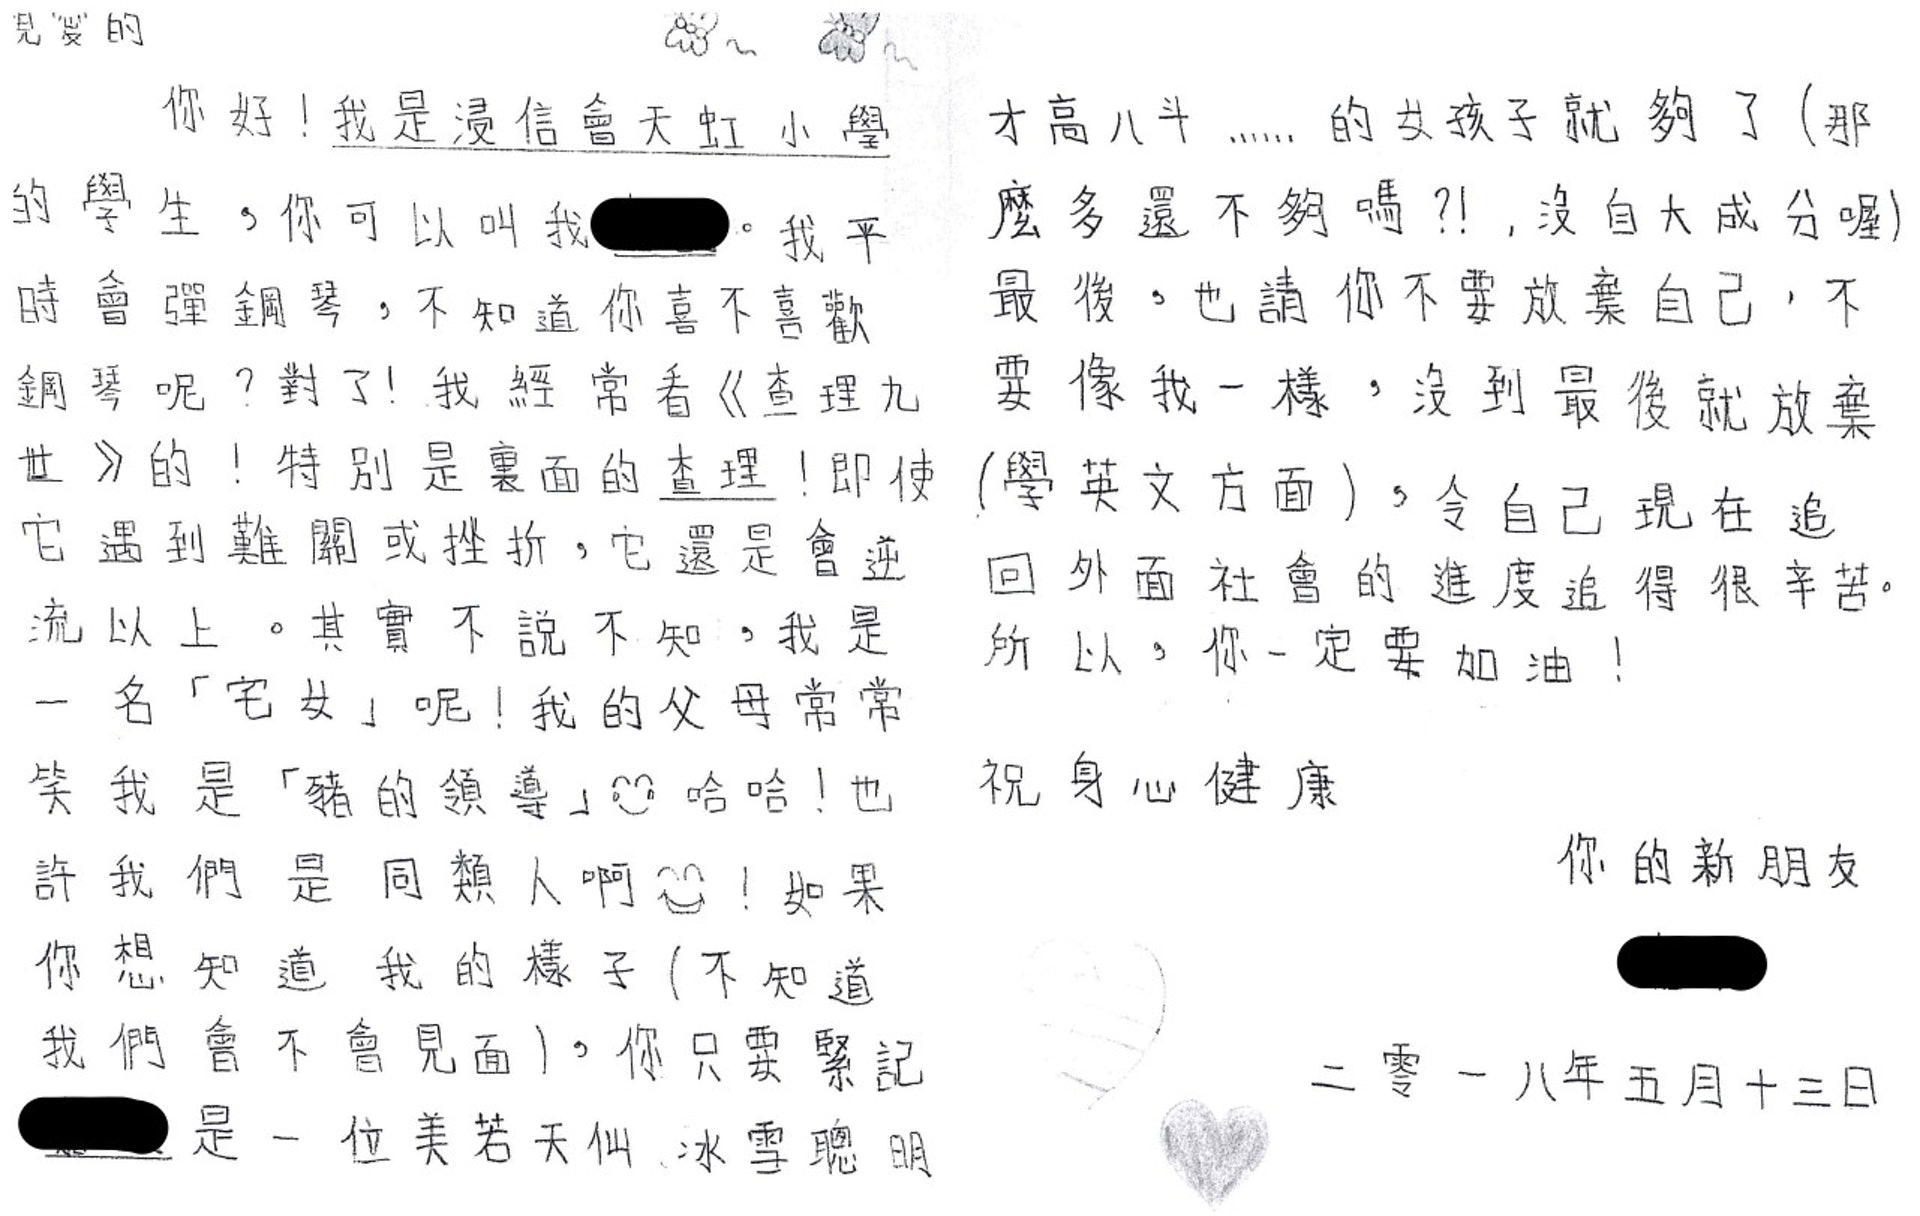 親愛的
你好！我是浸信會天虹小學
的學生，你可以叫我。我平
時會彈鋼琴，不知道你喜不喜歡
鋼琴呢？對了！我經常看《查理九
世》的！特別是裏面的查理！即使
它遇到難關或挫折，它還是會逆
流以上。其實不說不知，我是
一名「宅女」呢！我的父母常常
笑我是「豬的領導」哈哈！也
許我們是同類人啊！如果
你想知道我的樣子(不知道
我們會不會見面)，你只要緊記
是一位美若天仙、冰雪聰明
才高八斗……的女孩子就夠了(那
麼多還不夠嗎?!，沒自大成分喔)
最後，也請你不要放棄自己，不
要像我一樣，沒到最後就放棄
(學英文方面)，令自己現在追
回外面社會的進度追得很辛苦。
所以，你一定要加油！
祝身心健康
你的新朋友
二零一八年五月十三日